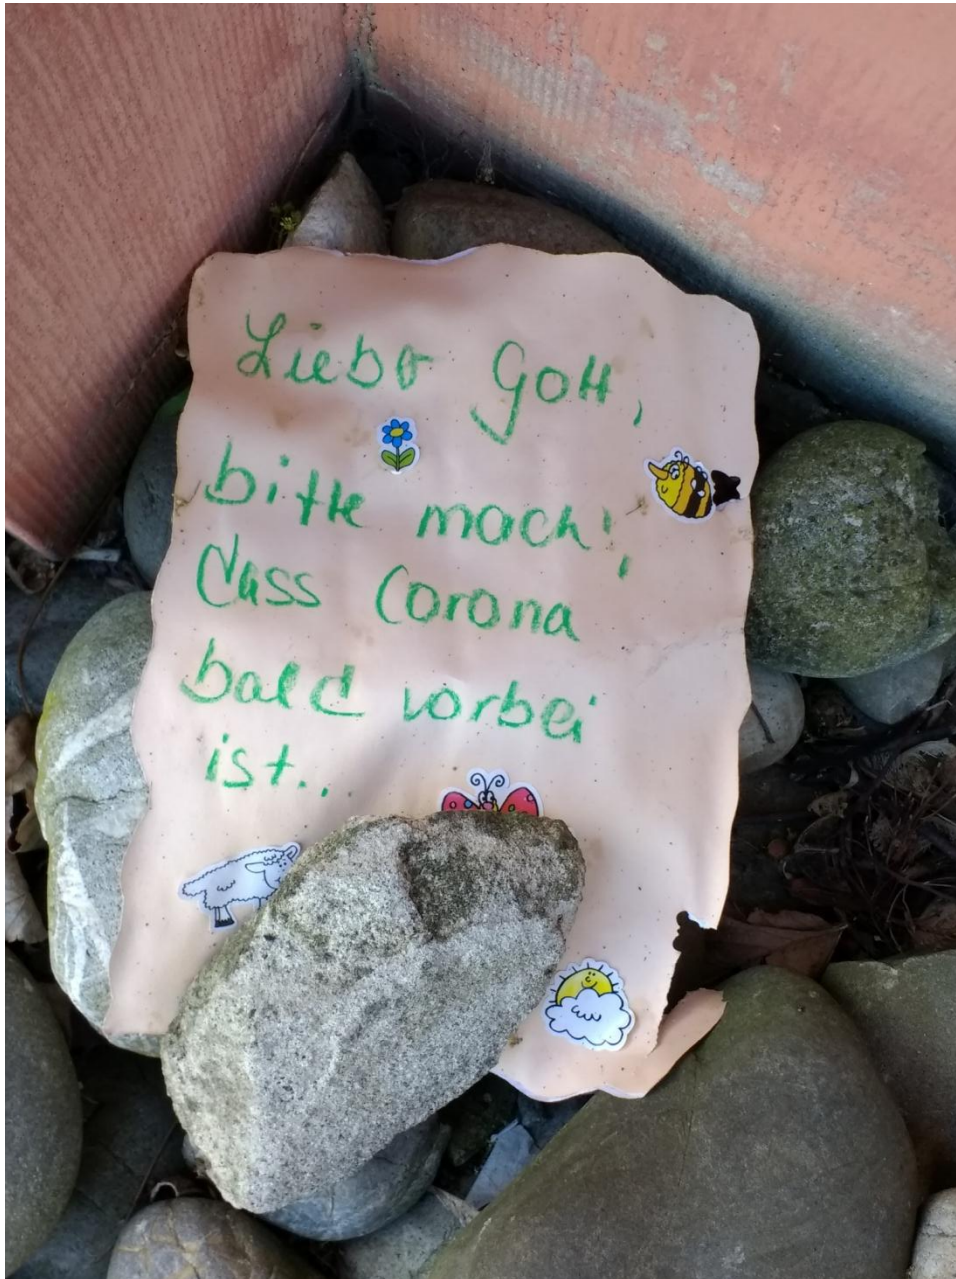 Liebo Gott,
bitte mach!,
dass Corona
bald vorbei
ist..